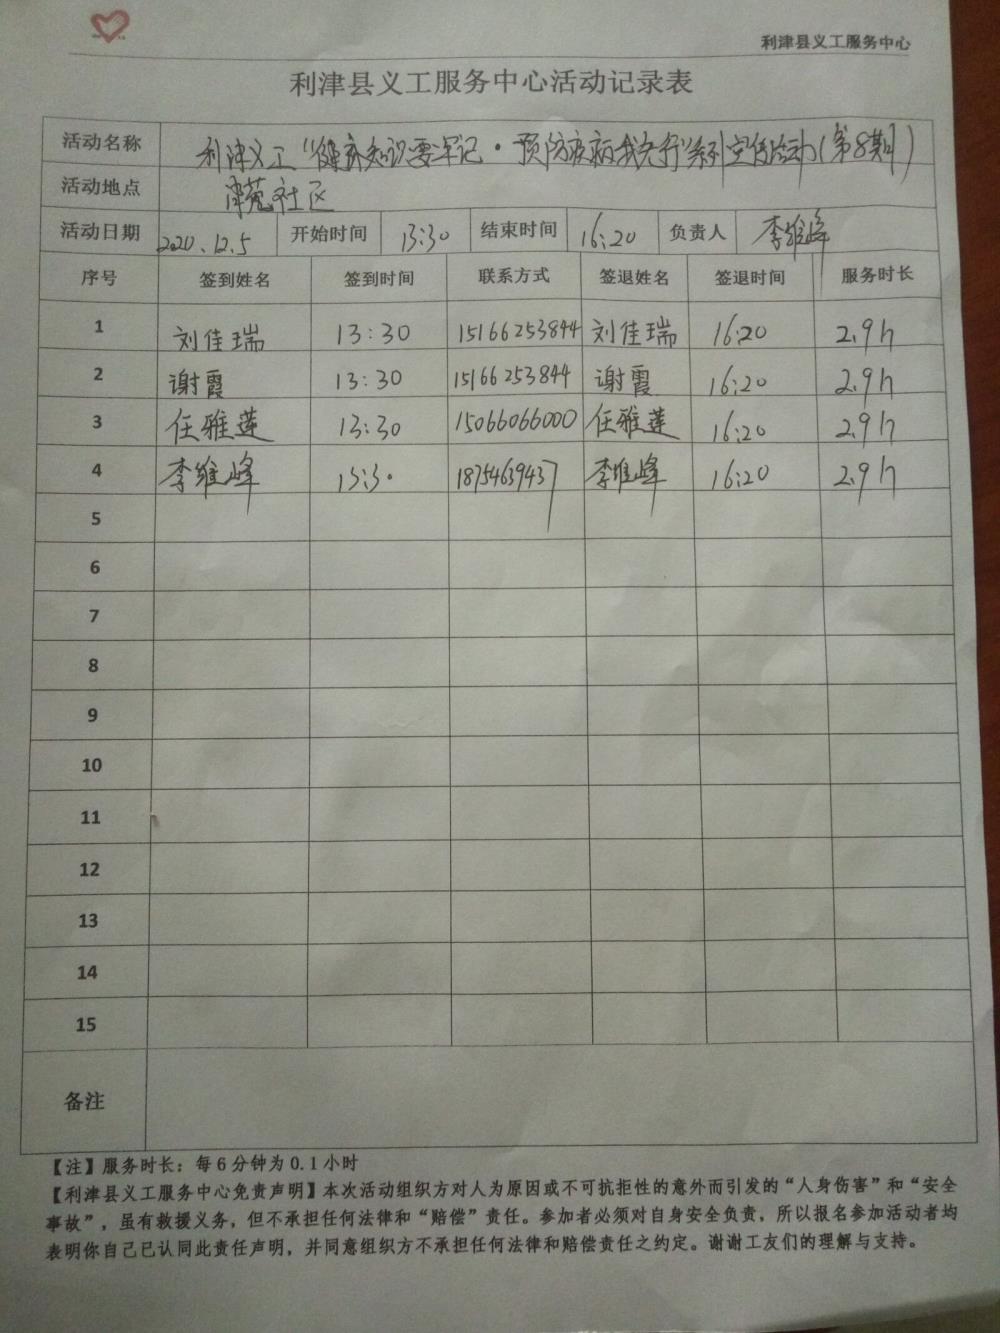 利津县义工服务中心
利津县义工服务中心活动记录表
活动名称 利津义工“健康知识要牢记·预防疾病我先行”系列宣传活动(第8期)
活动地点 津苑社区
活动日期 2020.12.5 开始时间 13:30 结束时间 16:20 负责人 李维峰
序号 签到姓名 签到时间 联系方式 签退姓名 签退时间 服务时长
1 刘佳瑞 13:30 15166253844 刘佳瑞 16:20 2.9h
2 谢霞 13:30 15166253844 谢霞 16:20 2.9h
3 任雅莲 13:30 15066066000 任雅莲 16:20 2.9h
4 李维峰 13:30 18754639437 李维峰 16:20 2.9h
5
6
7
8
9
10
11
12
13
14
15
备注
【注】服务时长：每6分钟为0.1小时
【利津县义工服务中心免责声明】本次活动组织方对人为原因或不可抗拒性的意外而引发的“人身伤害”和“安全
事故”，虽有救援义务，但不承担任何法律和“赔偿”责任。参加者必须对自身安全负责，所以报名参加活动者均
表明你自己已认同此责任声明，并同意组织方不承担任何法律和赔偿责任之约定。谢谢工友们的理解与支持。